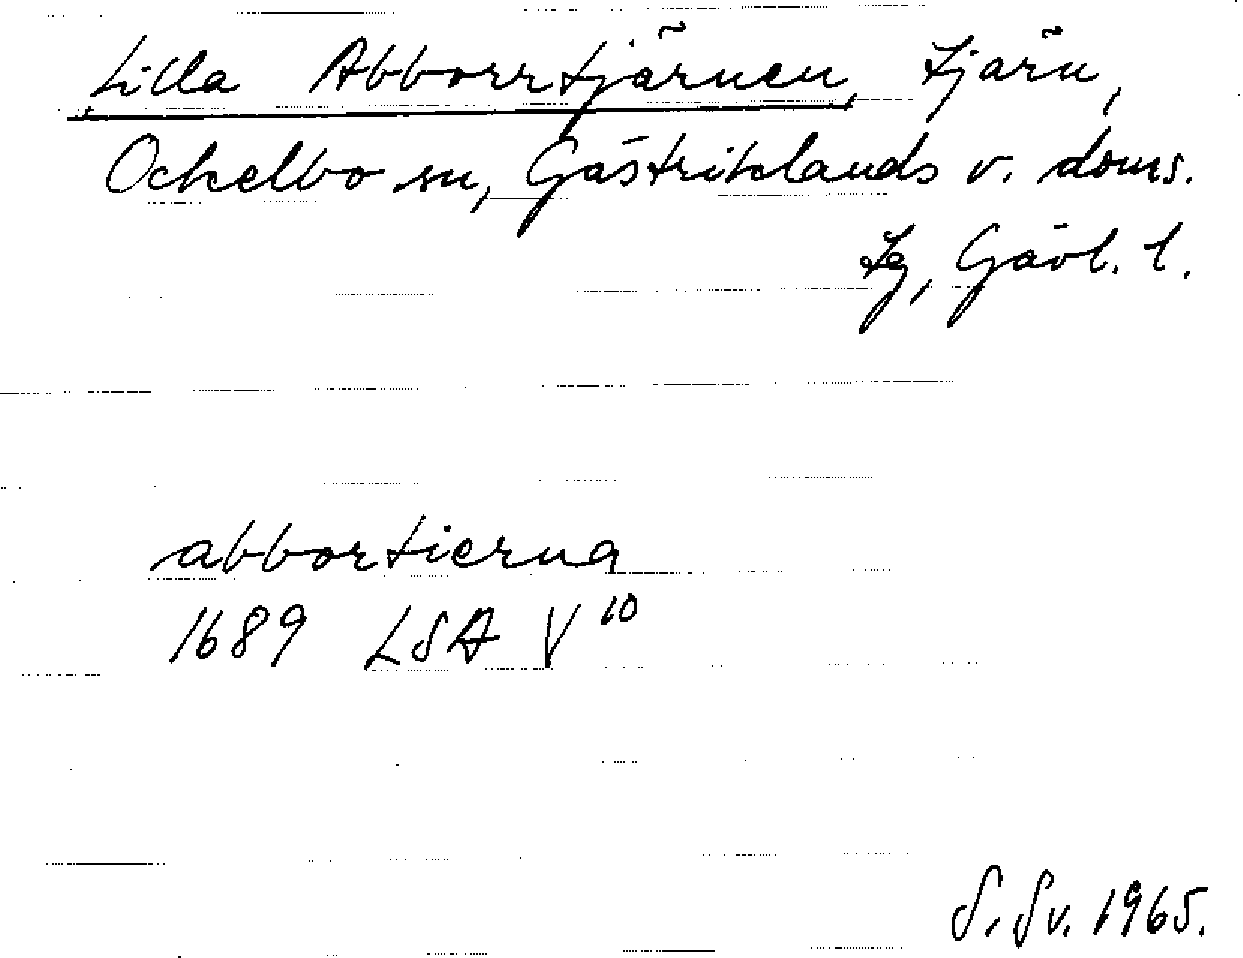 Lilla Abborrtjärnen, tjärn,
Ockelbo sn, Gästriklands v. doms.
tg, Gävl. l.
abbortierna
1689 LSA V 10
S. Sv. 1965.